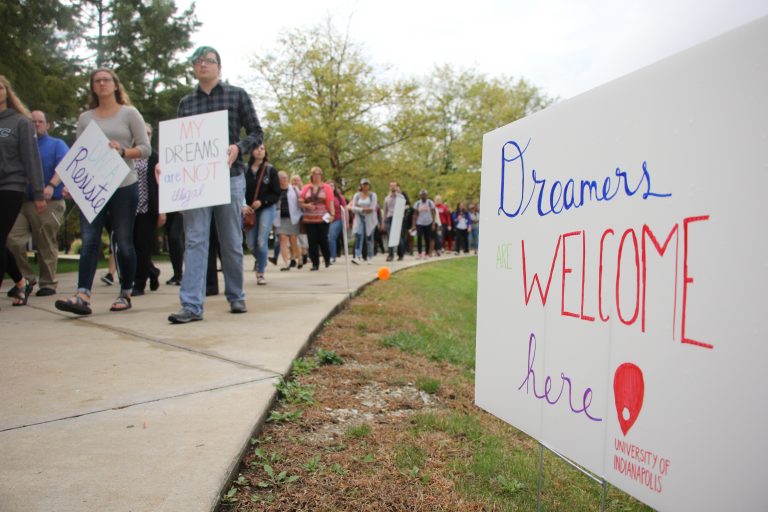 DACA
Resiste
MY
DREAMS
are NOT
illegal
Dreamers
ARE WELCOME
here
UNIVERSITY OF
INDIANAPOLIS